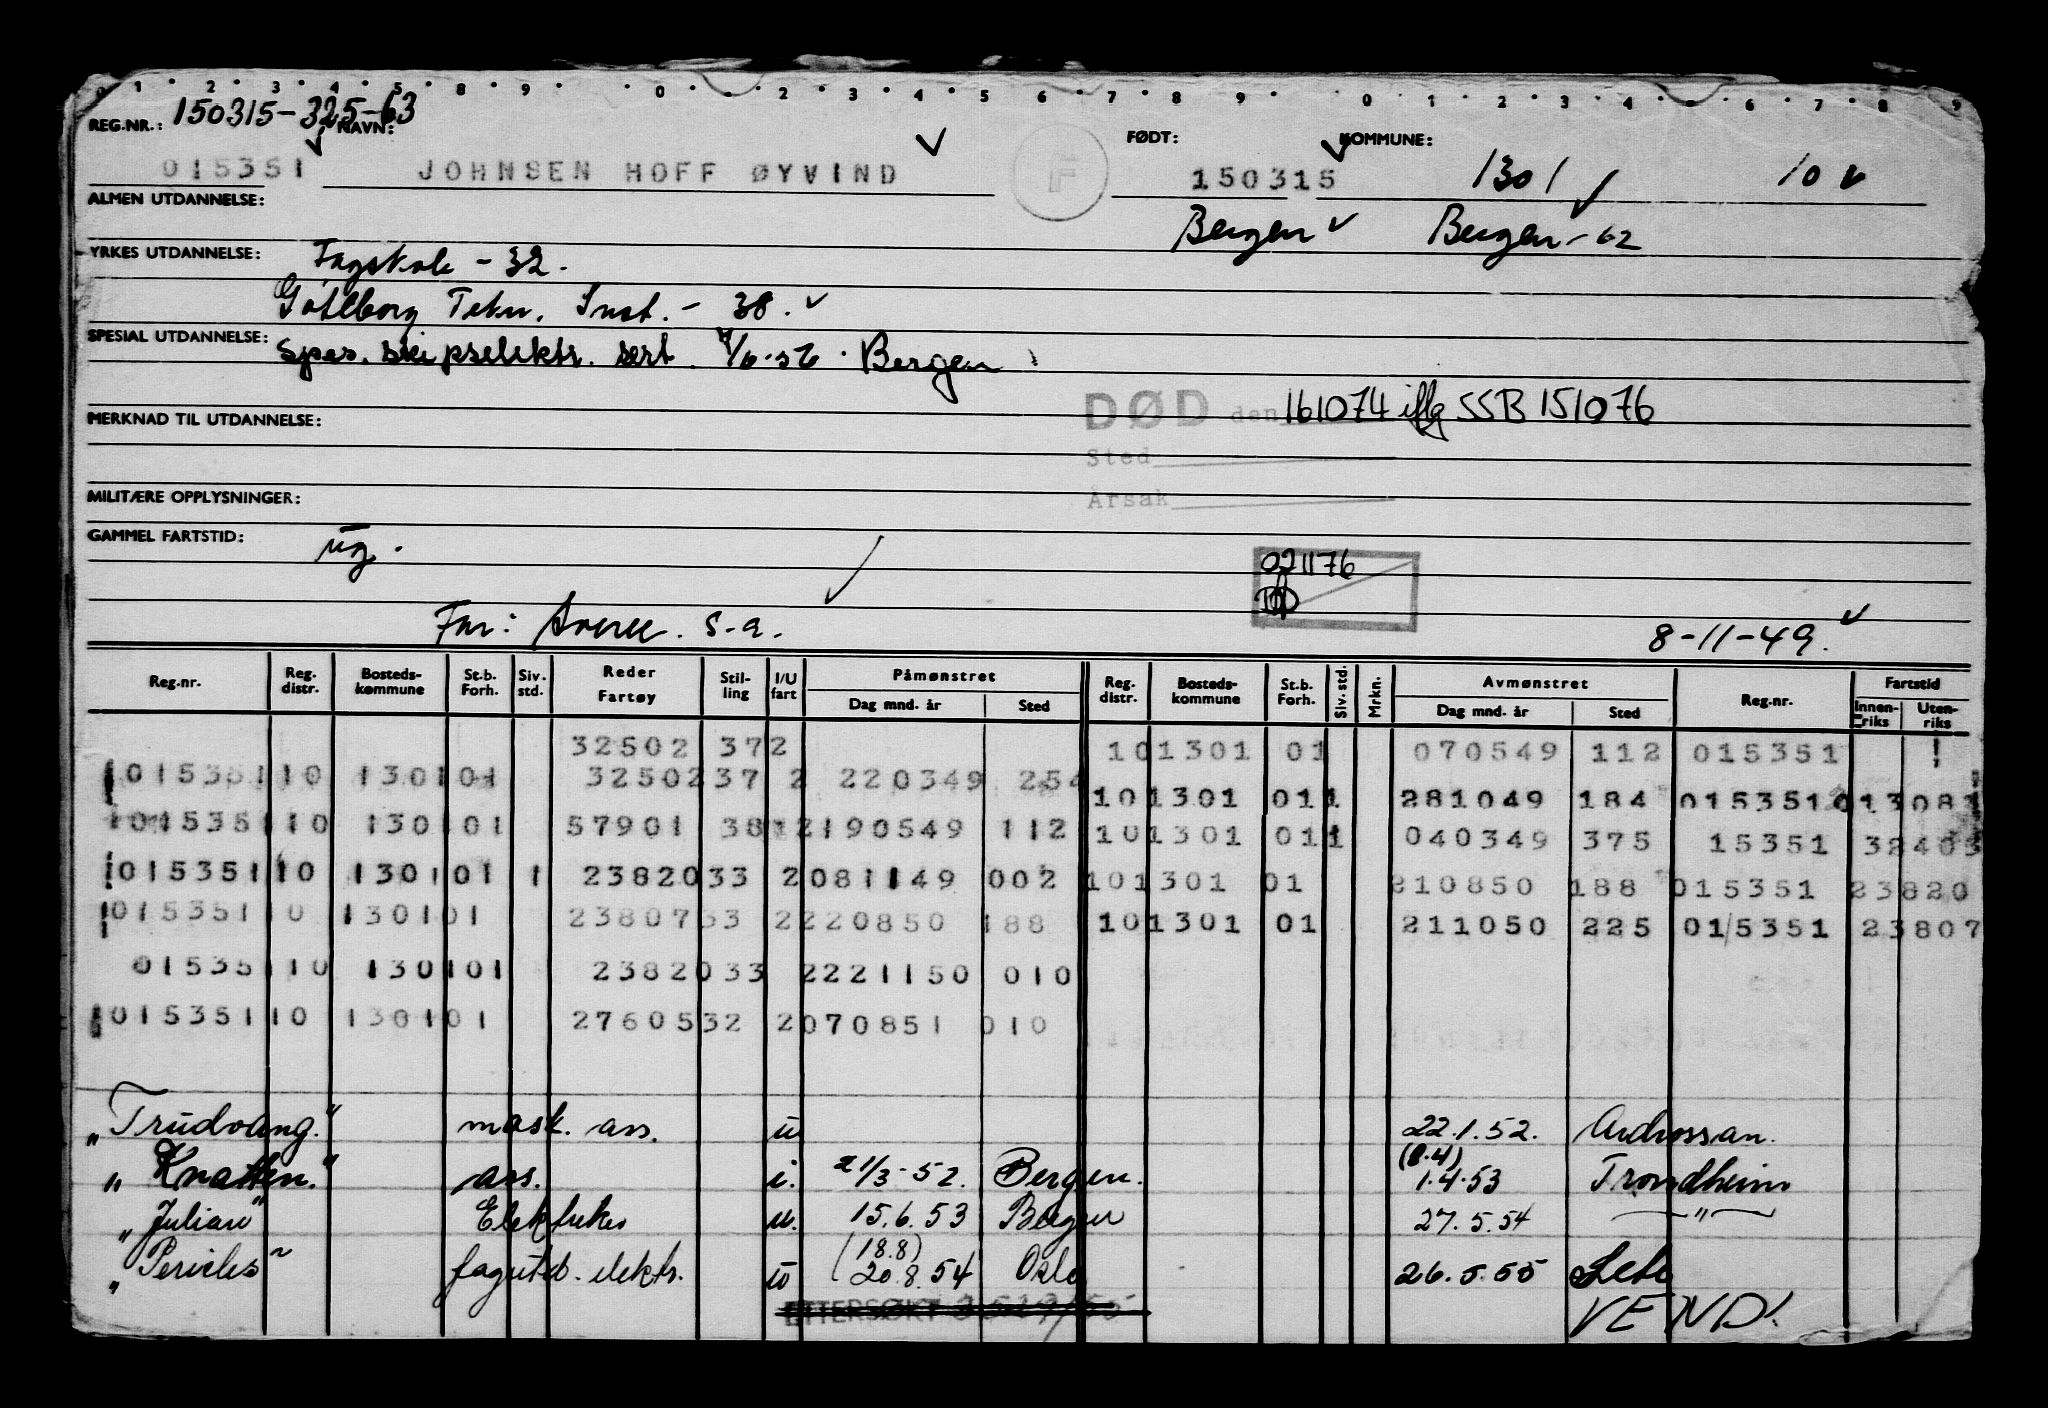 0 1 2 3 4 5 8 9 0 2 3 4 5 6 7 8 9 0 1 2 3 4 6 7 8 9
150315-325-63
REG.NR.: NAVN: FØDT: KOMMUNE:
015351 JOHNSEN HOFF ØYVIND F 150315 1301 10
ALMEN UTDANNELSE:
Bergen Bergen - 62
YRKES UTDANNELSE: Fagskole - 32.
Götlborg Tekn. Inst. - 38.
SPESIAL UTDANNELSE: Spes. skipselektr. sert. 4/6-56. Bergen
DØD den 161074 iflg SSB 151076
MERKNAD TIL UTDANNELSE:
Sted
MILITÆRE OPPLYSNINGER: Årsak
GAMMEL FARTSTID: ug.
021176
Far: s.a. 8-11-49.
Reg.nr. Reg. distr. Bosteds-kommune St.b. Forh. Siv. std. Reder Fartøy Stil-ling I/U fart Påmønstret Dag mnd. år Sted Reg. distr. Bosteds-kommune St.b. Forh. Siv. std. Mrkn. Avmønstret Dag mnd. år Sted Reg.nr. Fartstid Innen-riks Uten-riks
32502 372 101301 01 070549 112 015351
015351 10 1301 01 32502 37 2 220349 254 101301 011 281049 184 015351 013081
015351 10 1301 01 57901 381 2 190549 112 101301 011 040349 375 15351 32403
015351 10 1301 01 1 23820 33 2 081149 002 101301 01 210850 188 015351 23820
015351 10 1301 01 23807 33 2 220850 188 101301 01 211050 225 015351 23807
015351 10 1301 01 23820 33 2 221150 010
015351 10 1301 01 27605 32 2 070851 010
"Trudvang." mask. ass. u 22.1.52. Ardrossan.
"Knatten." ass. i. 21/3-52. Bergen. (8.4) 1.4.53 Trondheim
"Julian" Elektriker u. 15.6.53 Bergen 27.5.54 — " —
"Pericles" fagutd. elektr. u (18.8) 20.8.54 Oslo 26.5.55
ETTERSØKT
VEND!